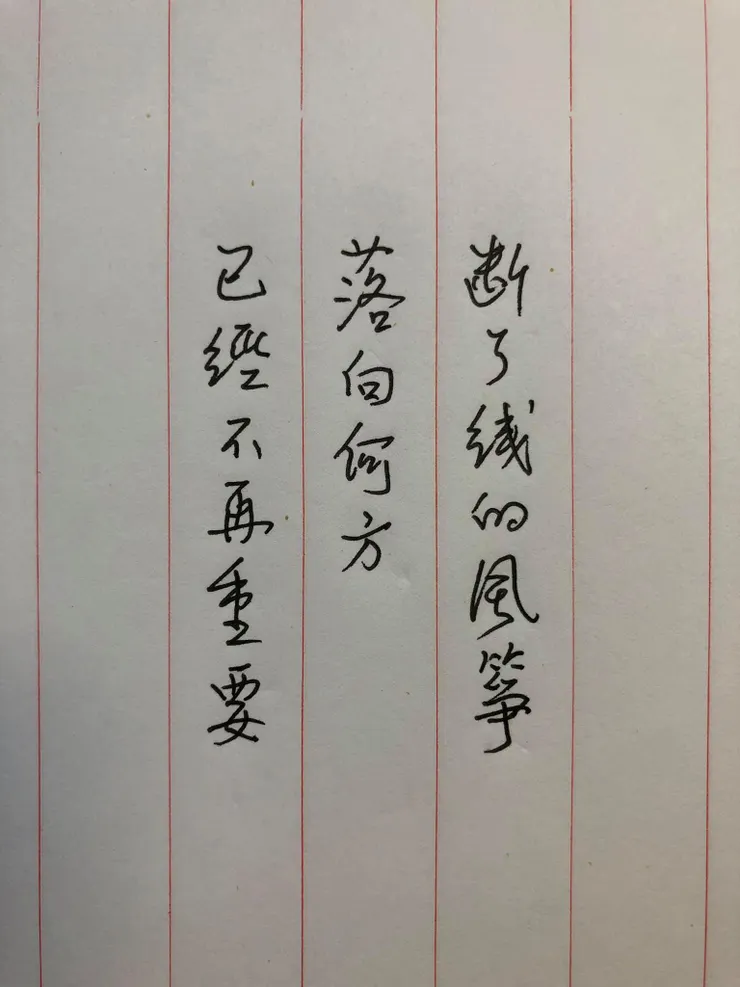 断了线的风筝
落向何方
已经不再重要